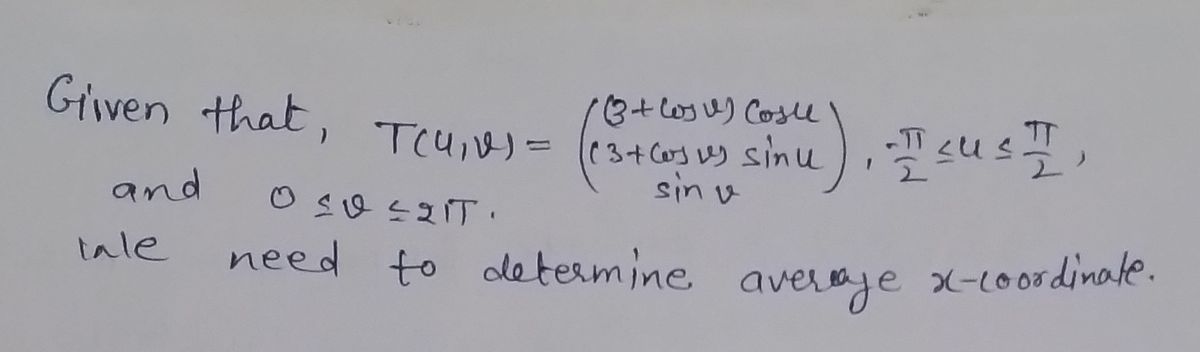 Given that, T(u,v) = ((3+cos v) cosu
(3+cos v) sinu
sin v), -π/2 ≤ u ≤ π/2,
and 0 ≤ v ≤ 2π.
We need to determine average x-coordinate.